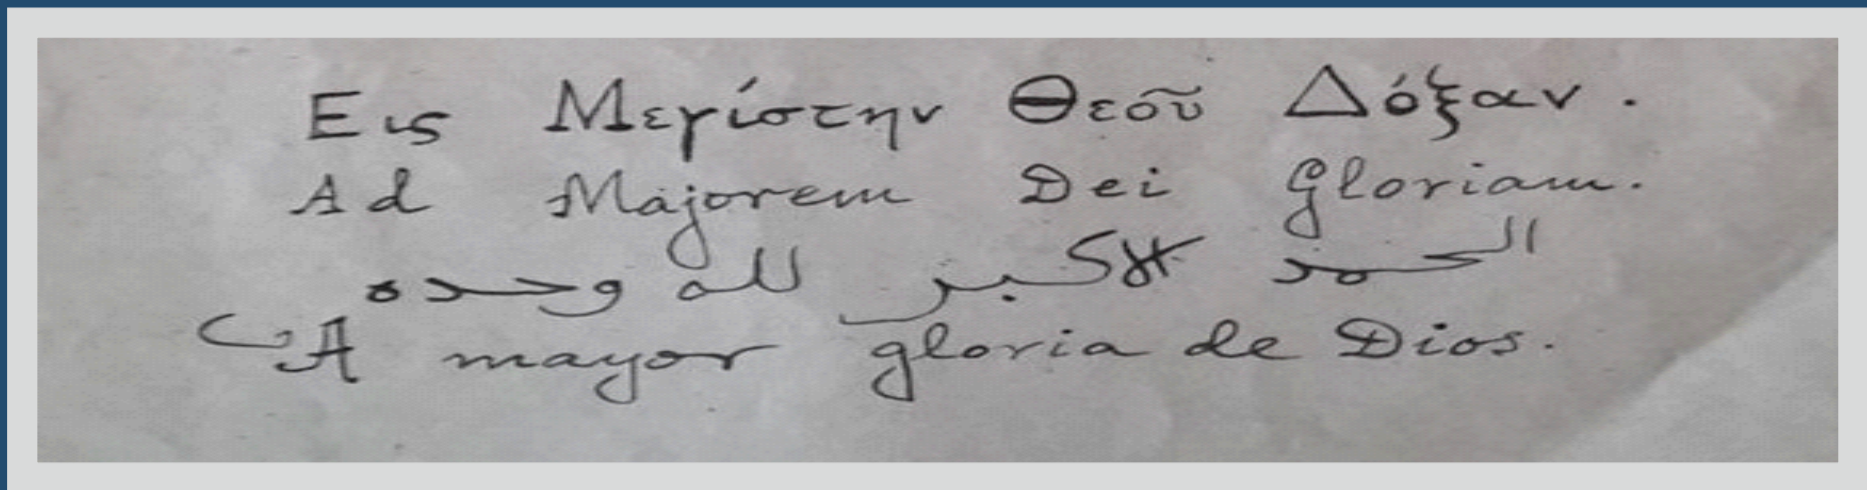 Εις Μεγίστην Θεόῦ Δόξαν.
Ad Majorem Dei Gloriam.
الحمد الاكبر لله وحده
A mayor gloria de Dios.